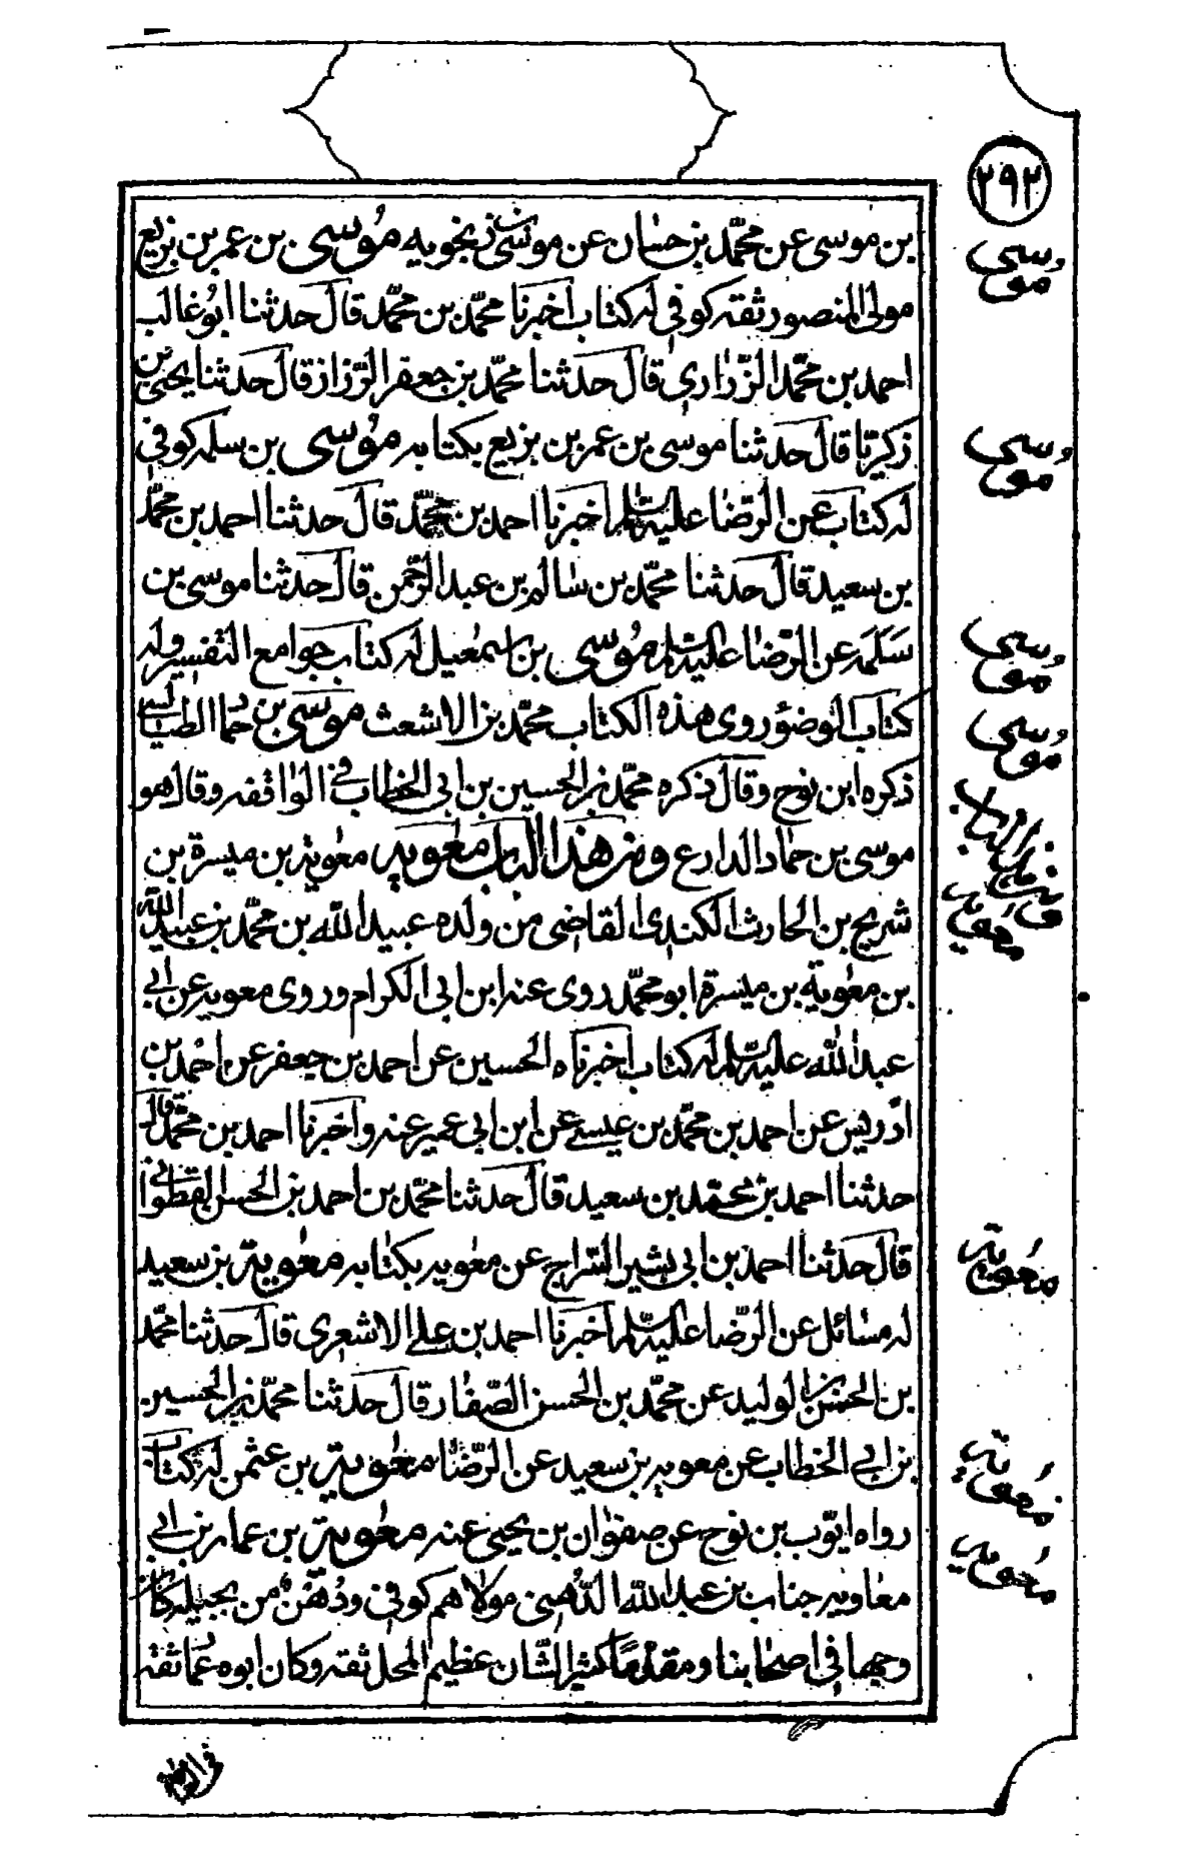 ٢٩٢
بن موسى عن محمّد بن حسان عن موسى بن زنجويه مُوسى بن عمر بن بزيع
مولى المنصور ثقه كوفى له كتاب اخبرنا محمّد بن محمّد قال حدثنا ابُو غالب
احمد بن محمّد الزّرارى قال حدثنا محمّد بن جعفر الرّزاز قال حدثنا يحيى بن
زكريّا قال حدثنا موسى بن عمر بن بزيع بكتابه مُوسى بن سلمه كوفى
له كتاب عن الرّضا عليه السّلم اخبرنا احمد بن محمّد قال حدثنا احمد بن محمّد
بن سعيد قال حدثنا محمّد بن سالم بن عبد الرّحمن قال حدثنا موسى بن
سَلَمَه عن الرّضا عليه السّلم مُوسى بن اسمعيل له كتاب جوامع التفسير وله
كتاب الوضوء روى هذه الكتاب محمّد بن الاشعث موسى بن حمّاد الطيالسى
ذكره ابن نوح وقال ذكره محمّد بن الحسين بن ابى الخطاب فى الواقفه وقال هو
موسى بن حماد الدارع ومن هذا الباب معويه معويه بن ميسرة بن
شريح بن الحارث الكندى القاضى من ولده عبيد الله بن محمّد بن عبيد الله
بن معوية بن ميسرة ابو محمّد روى عنه ابن ابى الكرام وروى معويه عن ابى
عبد الله عليه السّلم له كتاب اخبرناه الحسين عن احمد بن جعفر عن احمد بن
ادريس عن احمد بن محمّد بن عيسى عن ابن ابى عمير عنه واخبرنا احمد بن محمّد قال
حدثنا احمد بن محمّد بن سعيد قال حدثنا محمّد بن احمد بن الحسن القطوانى
قال حدثنا احمد بن ابى بشير السّراج عن معويه بكتابه معوية بن سعيد
له مسائل عن الرّضا عليه السّلم اخبرنا احمد بن على الاشعرى قال حدثنا محمّد
بن الحسن بن الوليد عن محمّد بن الحسن الصّفار قال حدثنا محمّد بن الحسين
بن ابى الخطاب عن معويه بن سعيد عن الرّضا معوية بن عثمن له كتاب
رواه ايّوب بن نوح عن صفوان بن يحيى عنه معوية بن عمار بن ابى
معاويه جناب بن عبد الله الدُهنى مولاهم كوفى ودُهْن من بجيله كان
وجها فى اصحابنا ومقدمًا كثير الشّان عظيم المحل ثقه وكان ابوه عمّار ثقة
مُوسى
مُوسى
مُوسى
مُوسى
ومن هذا الباب معويه
معوية
معوية
معويه
فى العامّة